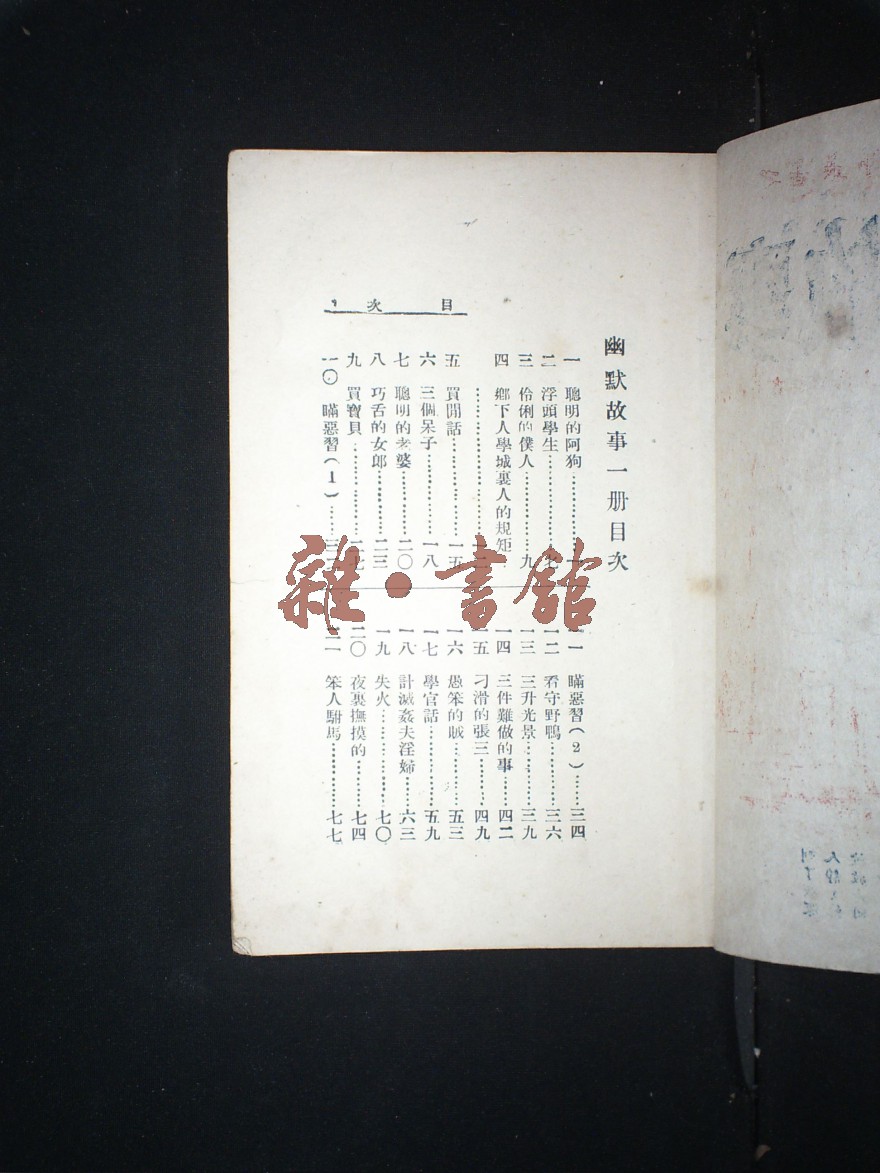 幽默故事一册目次
一 聰明的阿狗…………一
二 浮頭學生…………七
三 伶俐的僕人…………九
四 鄉下人學城裏人的規矩
…………一二
五 買閒話…………一五
六 三個呆子…………一八
七 聰明的老婆…………二〇
八 巧舌的女郎…………二三
九 買寶貝…………二七
一〇 瞞惡習(1)……三二
一一 瞞惡習(2)……三四
一二 看守野鴨…………三六
一三 三升光景…………三九
一四 三件難做的事……四二
一五 刁滑的張三………四九
一六 愚笨的賊…………五三
一七 學官話…………五九
一八 計滅姦夫淫婦……六三
一九 失火…………七〇
二〇 夜裏撫摸的………七四
二一 笨人駙馬…………七七
目次 1
雜·書館